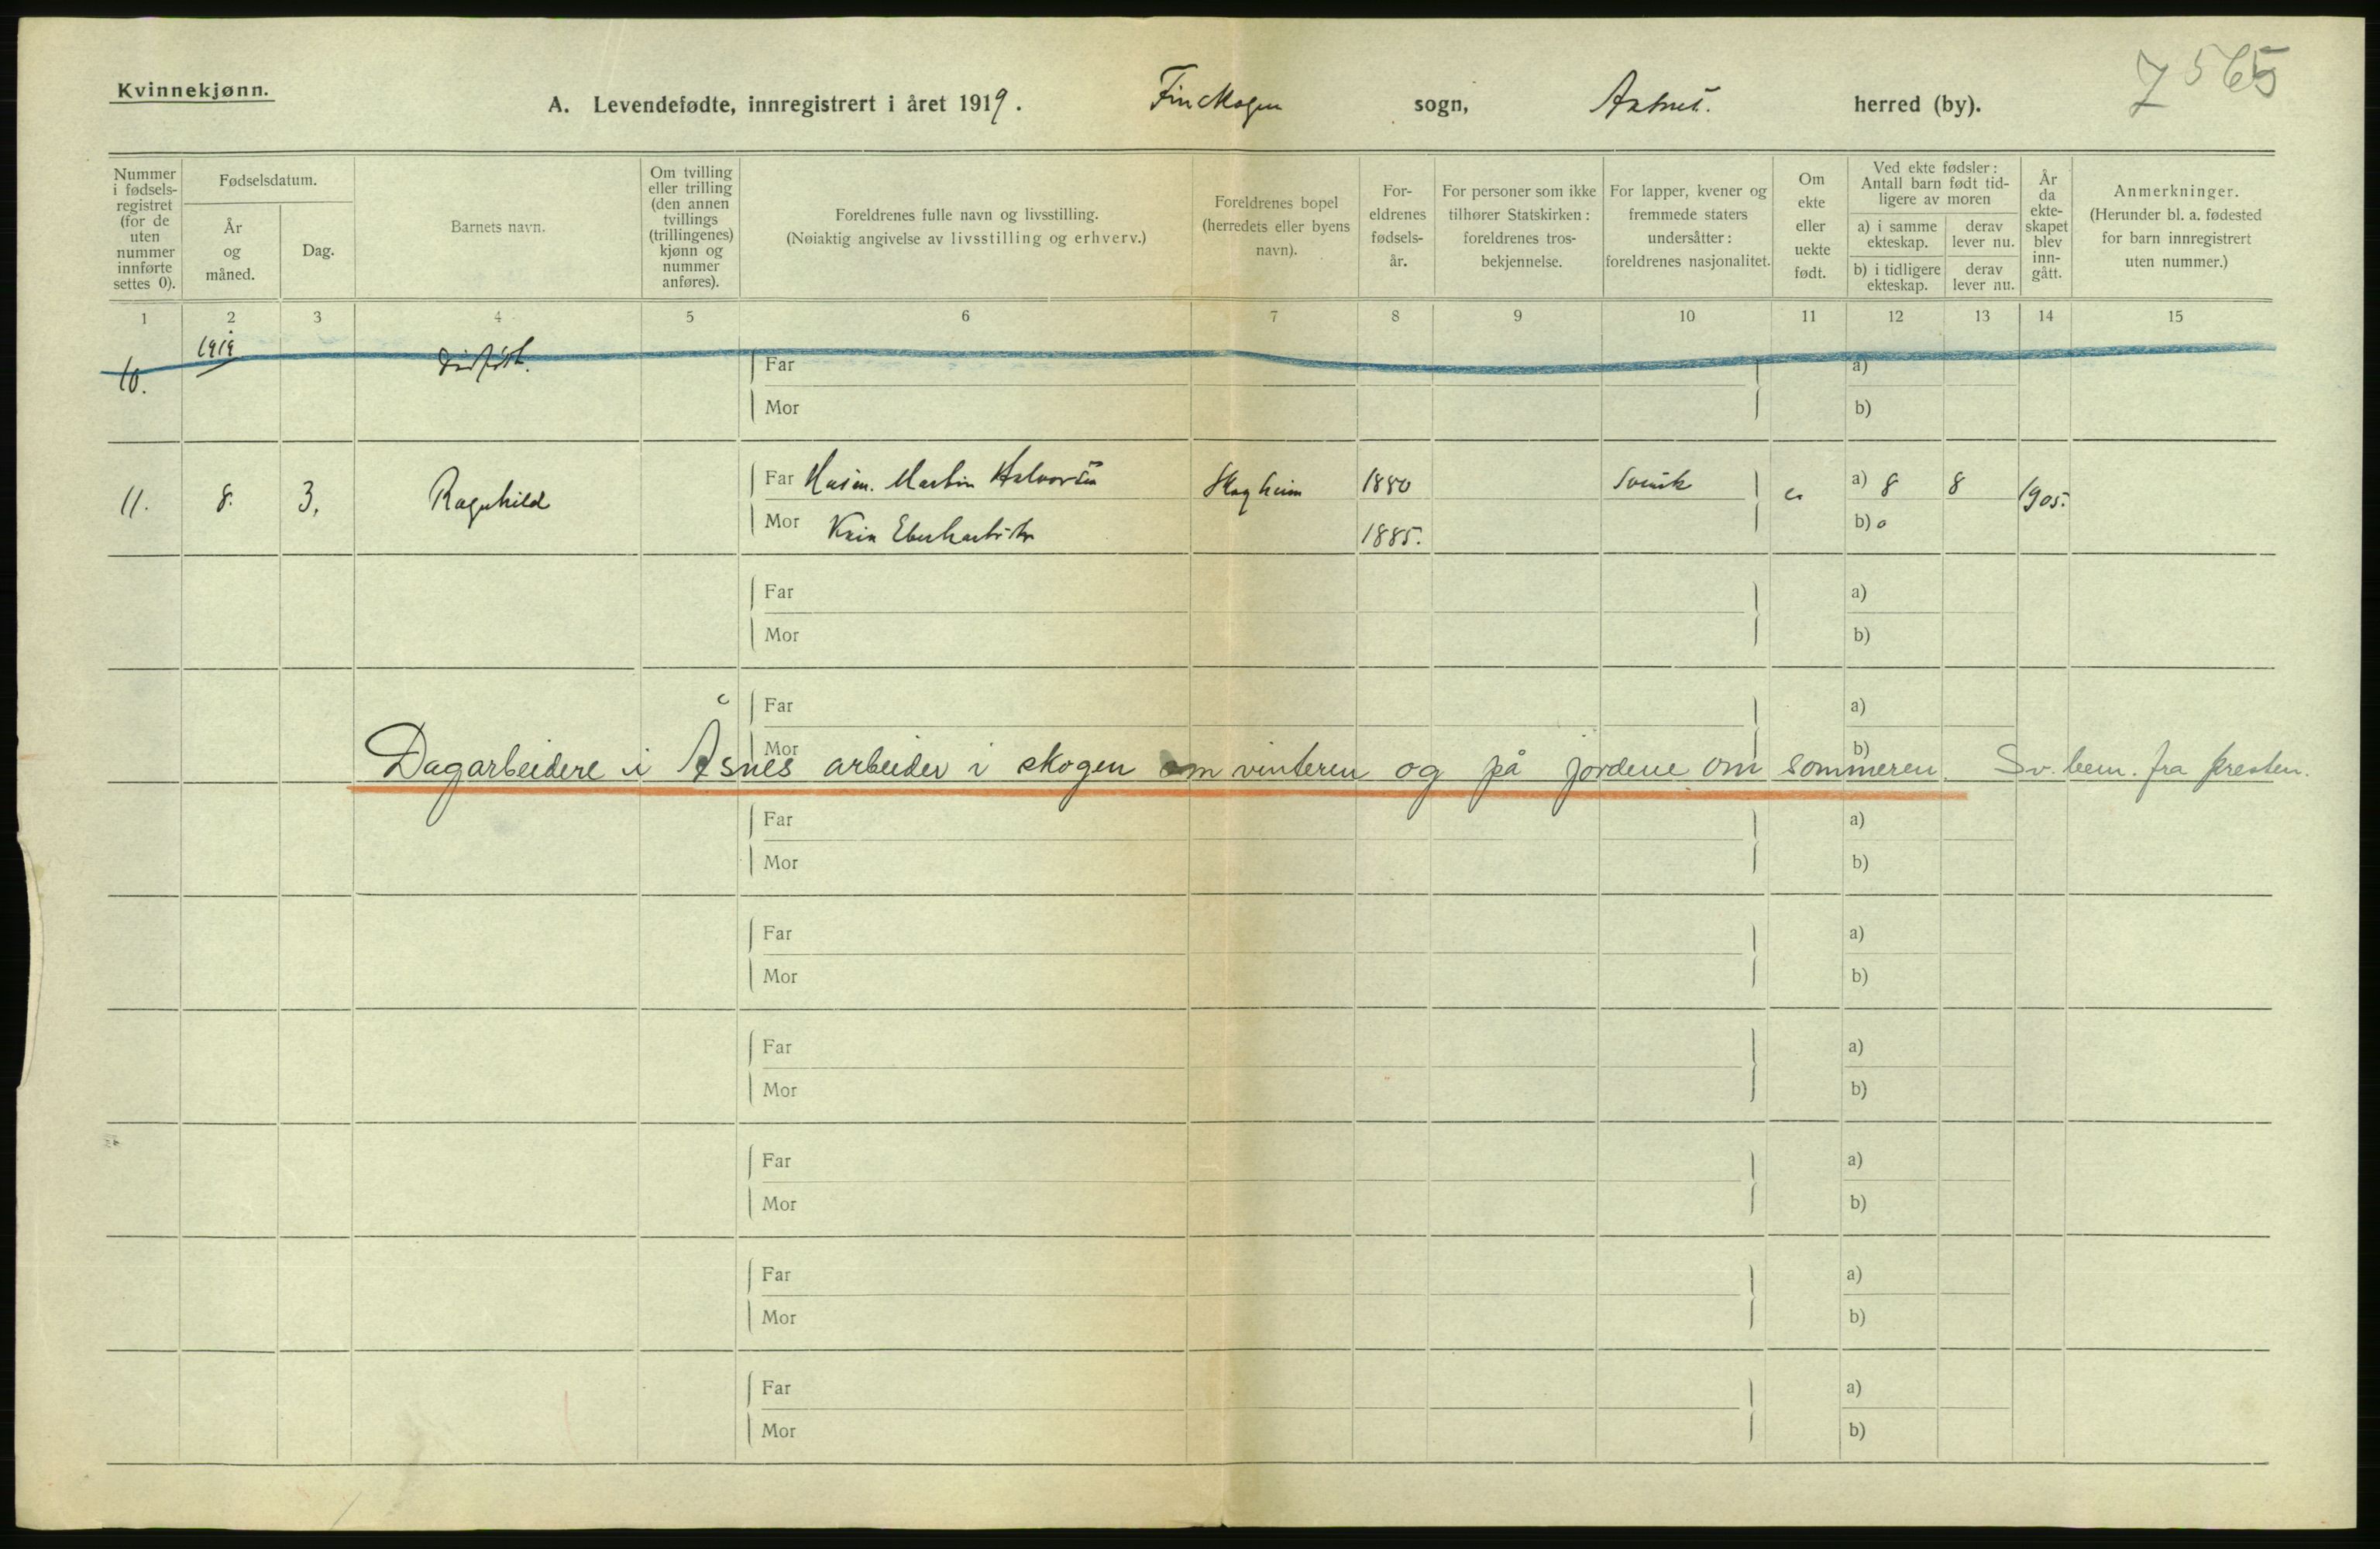 7565
Kvinnekjønn.
A. Levendefødte, innregistrert i året 1919. Finskogen sogn, Aasnes. herred (by).
Nummer i fødsels- registret (for de uten nummer innførte settes 0).
Fødselsdatum.
År og måned.
Dag.
Barnets navn.
Om tvilling eller trilling (den annen tvillings (trillingenes) kjønn og nummer anføres).
Foreldrenes fulle navn og livsstilling.
(Nøiaktig angivelse av livsstilling og erhverv.)
Foreldrenes bopel (herredets eller byens navn).
For- eldrenes fødsels- år.
For personer som ikke tilhører Statskirken: foreldrenes tros- bekjennelse.
For lapper, kvener og fremmede staters undersåtter: foreldrenes nasjonalitet.
Om ekte eller uekte født.
Ved ekte fødsler: Antall barn født tid- ligere av moren
a) i samme ekteskap.
derav lever nu.
b) i tidligere ekteskap.
derav lever nu.
År da ekte- skapet blev inn- gått.
Anmerkninger.
(Herunder bl. a. fødested for barn innregistrert uten nummer.)
1 2 3 4 5 6 7 8 9 10 11 12 13 14 15
1919
10. dødfødt. Far a)
Mor b)
11. 8. 3. Ragnhild Far Husm. Martin Halvorsen Skogheim 1880 Svensk e a) 8 8 1905.
Mor 1885. b) 0
Far a)
Mor b)
Far a)
Mor b)
Dagarbeidere i Åsnes arbeider i skogen om vinteren og på jordene om sommeren. Sv. bem. fra presten.
Far a)
Mor b)
Far a)
Mor b)
Far a)
Mor b)
Far a)
Mor b)
Far a)
Mor b)
Far a)
Mor b)